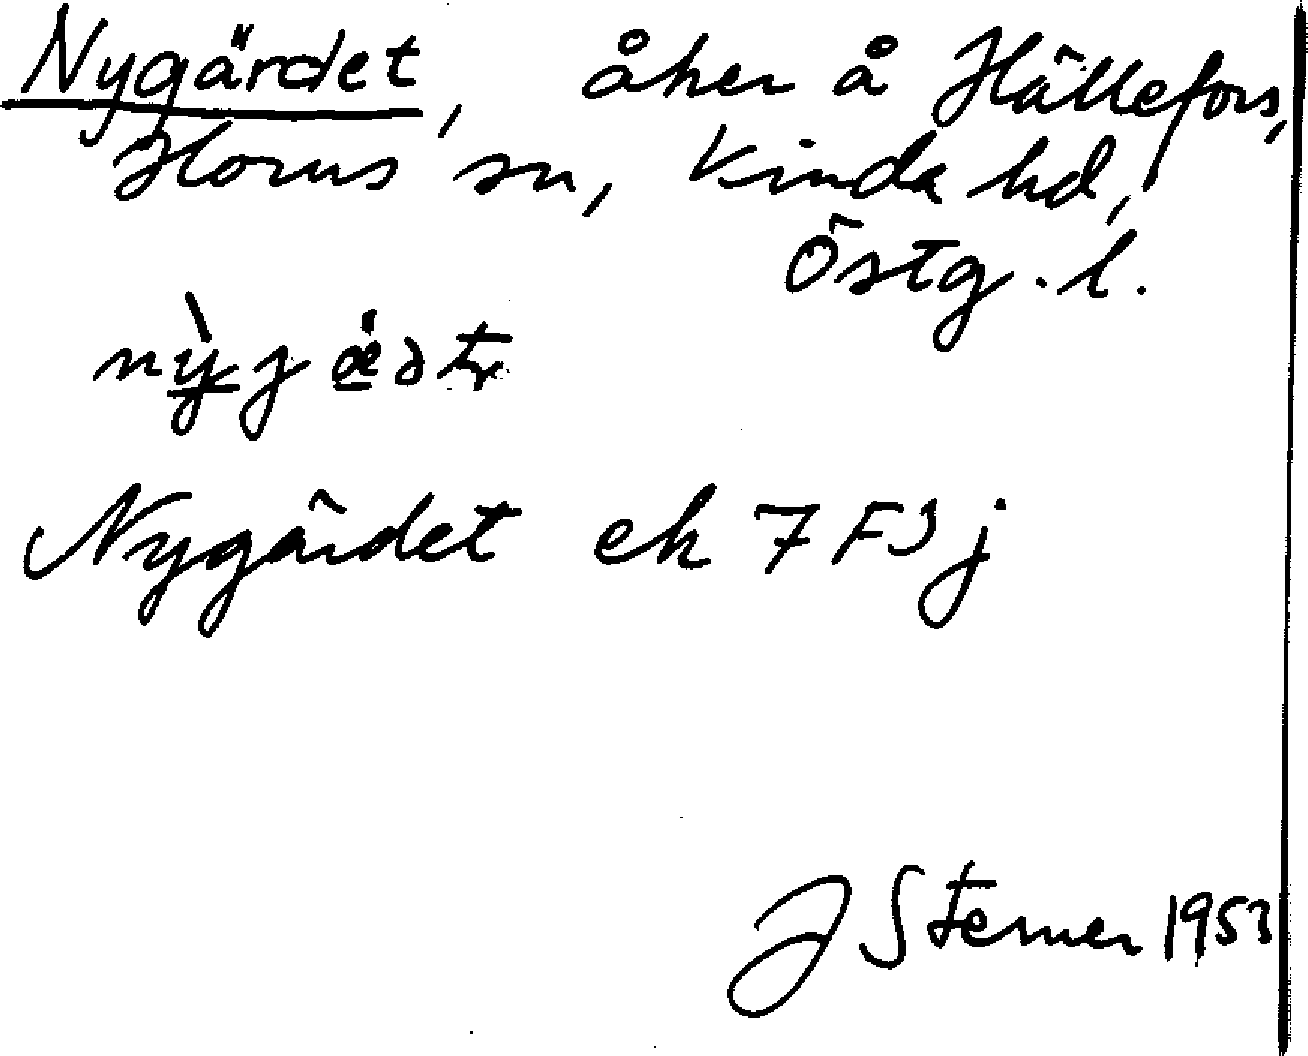 Nygärdet, åker å Hällefors,
Horns sn, Kinda hd,
Östg. l.
Nygärdet ek 7 F3j
J Sterner 1953